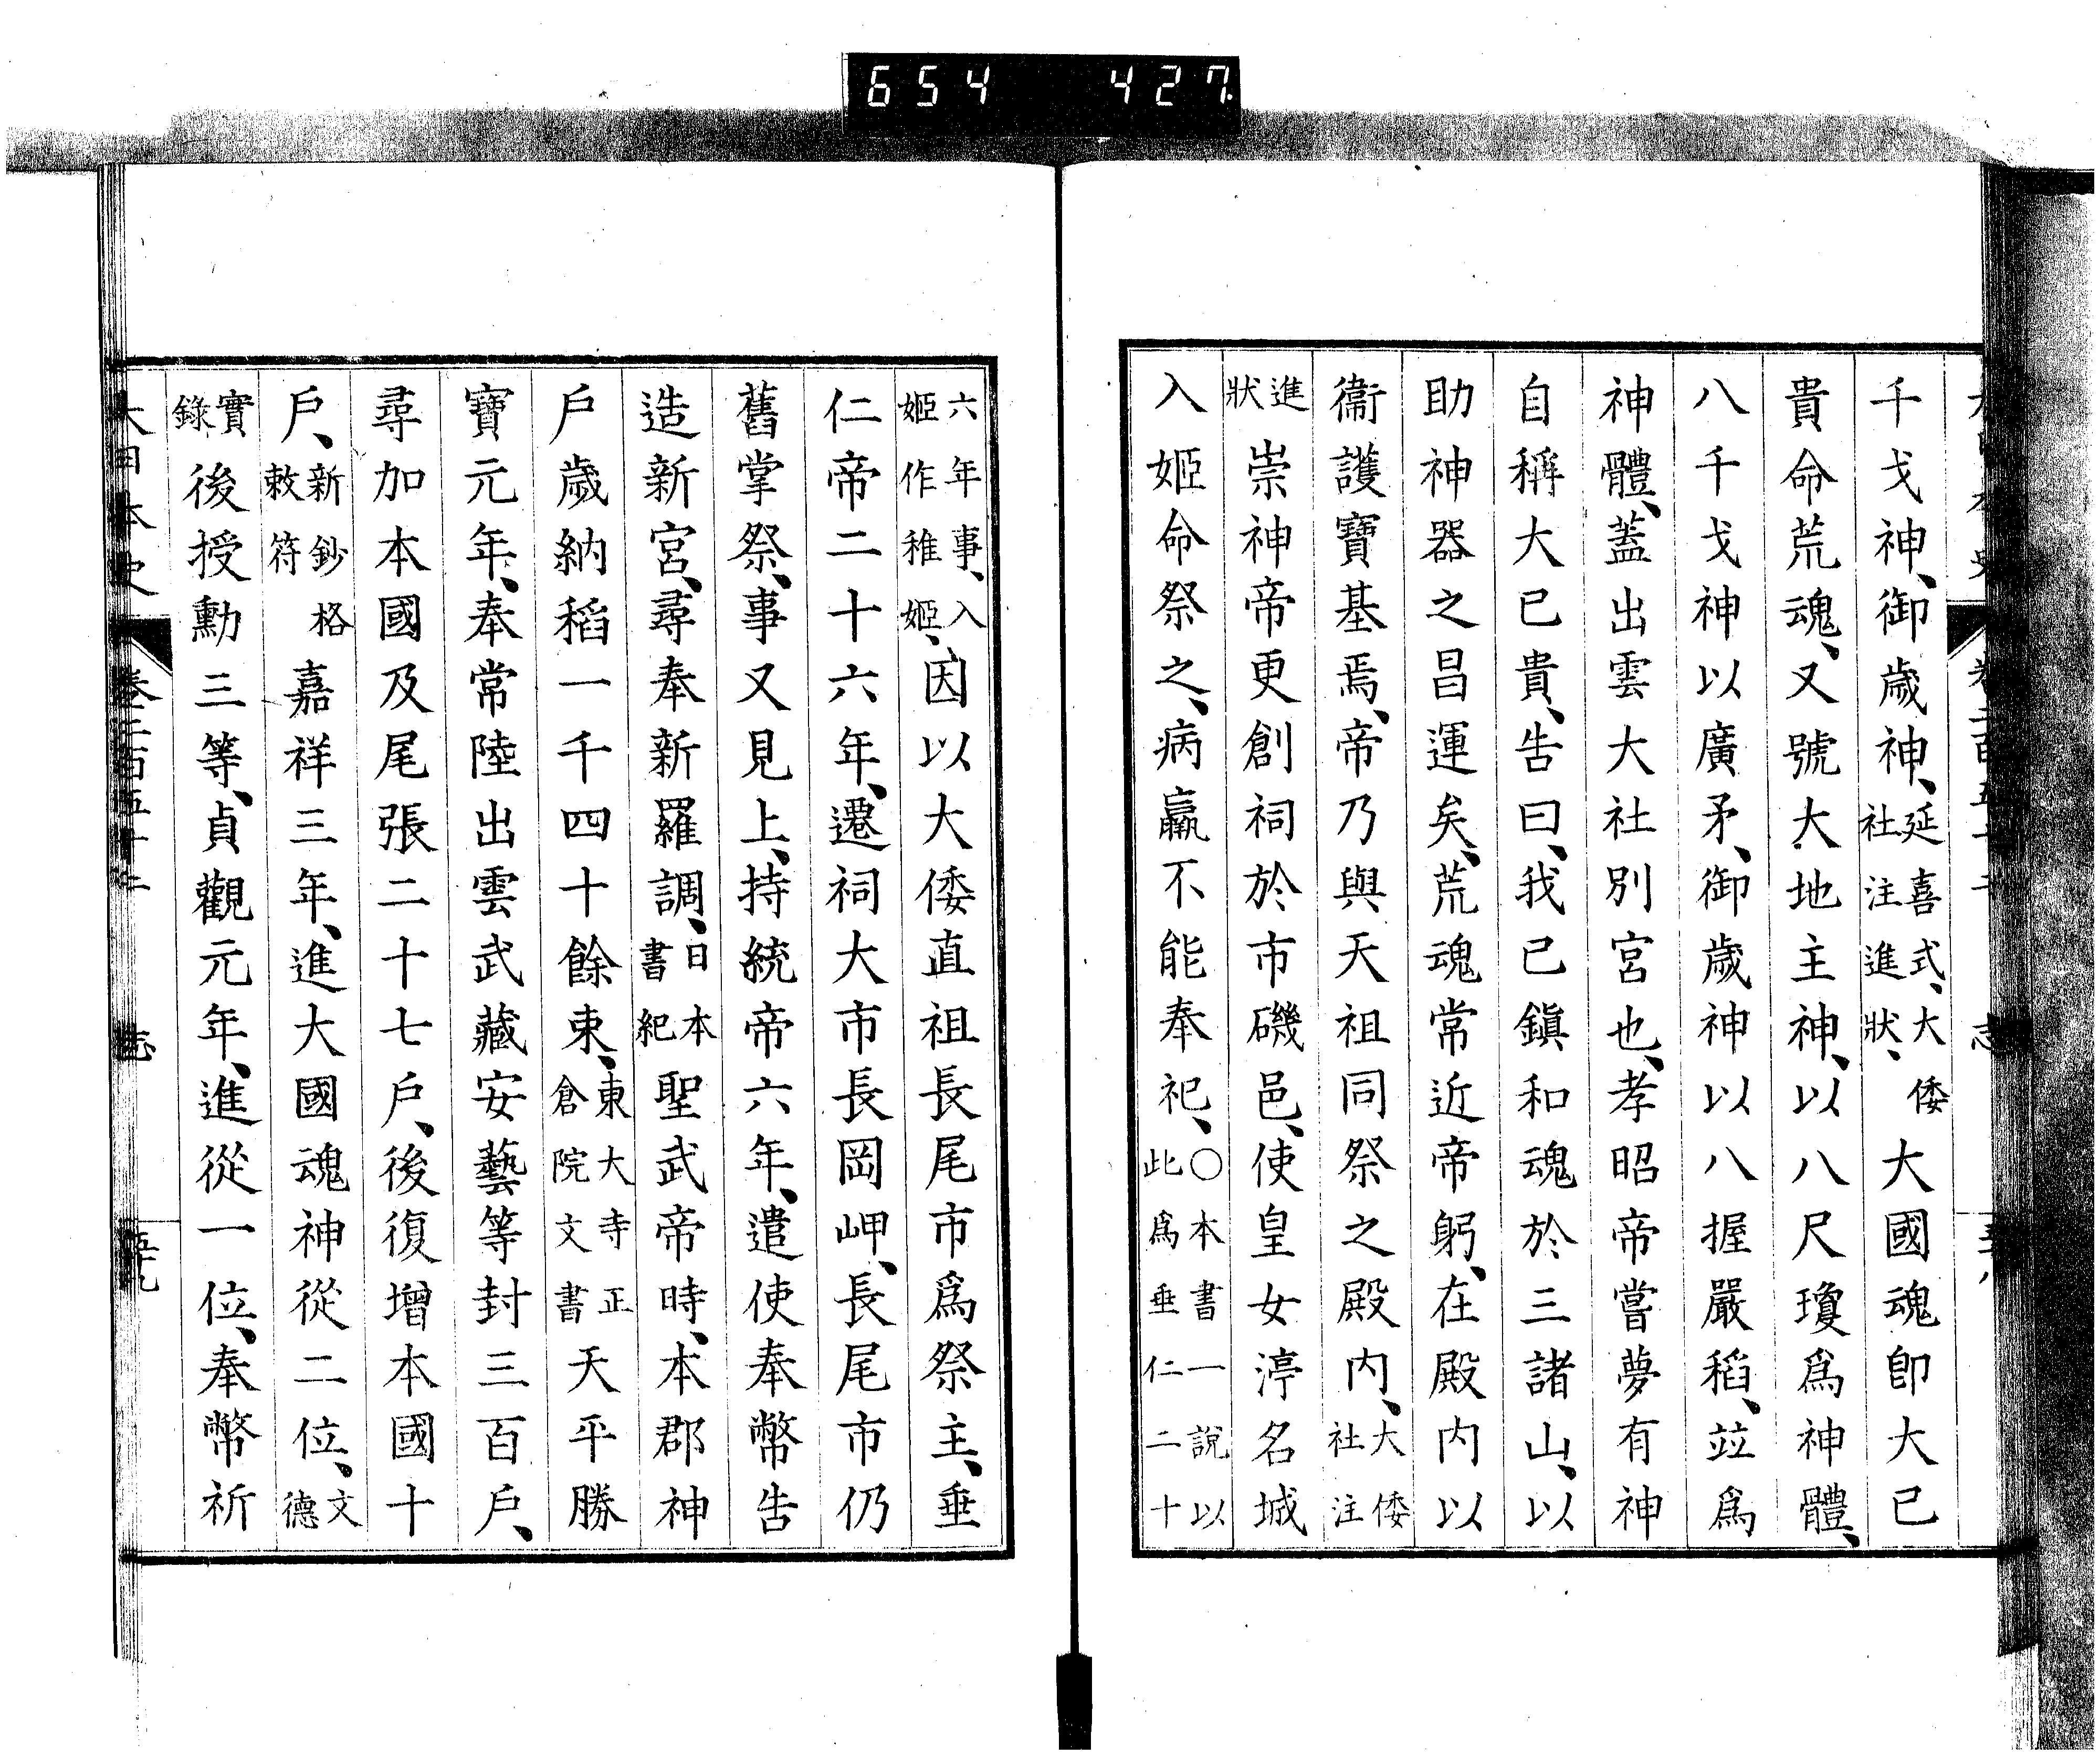 654 427
千戈神、御歲神、延喜式、大倭社注進狀、大國魂卽大已
貴命荒魂、又號大地主神、以八尺瓊爲神體、
八千戈神以廣矛、御歲神以八握嚴稻、竝爲
神體、蓋出雲大社別宮也、孝昭帝嘗夢有神
自稱大已貴、告曰、我已鎭和魂於三諸山、以
助神器之昌運矣、荒魂常近帝躬、在殿內以
衞護寶基焉、帝乃與天祖同祭之殿內、大倭社注
進狀崇神帝更創祠於市磯邑、使皇女渟名城
入姬命祭之、病羸不能奉祀、〇本書一說以此爲垂仁二十
六年事、入姬作稚姬、因以大倭直祖長尾市爲祭主、垂
仁帝二十六年、遷祠大市長岡岬、長尾市仍
舊掌祭、事又見上、持統帝六年、遣使奉幣告
造新宮、尋奉新羅調、日本書紀聖武帝時、本郡神
戶歲納稻一千四十餘束、東大寺正倉院文書天平勝
寶元年、奉常陸出雲武藏安藝等封三百戶、
尋加本國及尾張二十七戶、後復增本國十
戶、新鈔格敕符嘉祥三年、進大國魂神從二位、文德
實錄後授勳三等、貞觀元年、進從一位、奉幣祈
大日本史 卷二百五十二 志 五十九